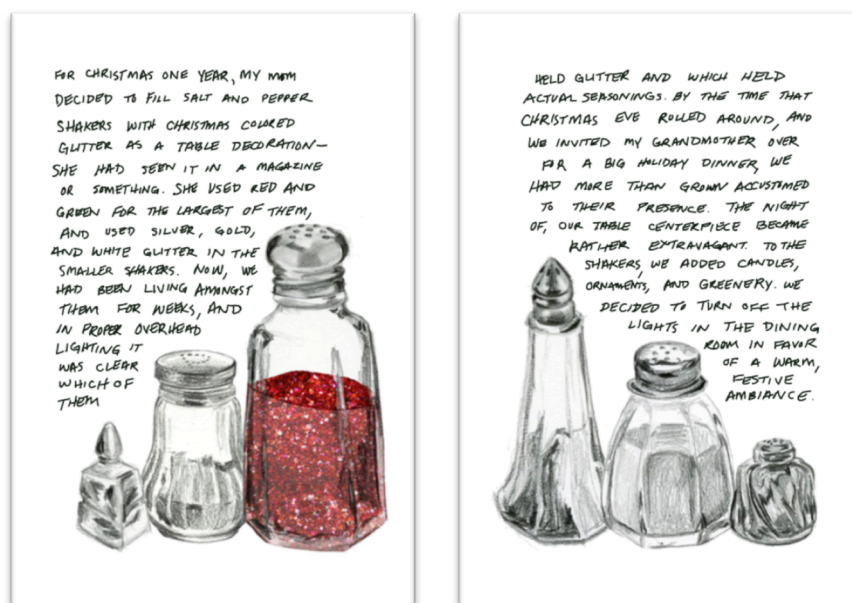 FOR CHRISTMAS ONE YEAR, MY MOM
DECIDED TO FILL SALT AND PEPPER
SHAKERS WITH CHRISTMAS COLORED
GLITTER AS A TABLE DECORATION—
SHE HAD SEEN IT IN A MAGAZINE
OR SOMETHING. SHE USED RED AND
GREEN FOR THE LARGEST OF THEM,
AND USED SILVER, GOLD,
AND WHITE GLITTER IN THE
SMALLER SHAKERS. NOW, WE
HAD BEEN LIVING AMONGST
THEM FOR WEEKS, AND
IN PROPER OVERHEAD
LIGHTING IT
WAS CLEAR
WHICH OF
THEM
HELD GLITTER AND WHICH HELD
ACTUAL SEASONINGS. BY THE TIME THAT
CHRISTMAS EVE ROLLED AROUND, AND
WE INVITED MY GRANDMOTHER OVER
FOR A BIG HOLIDAY DINNER, WE
HAD MORE THAN GROWN ACCUSTOMED
TO THEIR PRESENCE. THE NIGHT
OF, OUR TABLE CENTERPIECE BECAME
RATHER EXTRAVAGANT. TO THE
SHAKERS, WE ADDED CANDLES,
ORNAMENTS, AND GREENERY. WE
DECIDED TO TURN OFF THE
LIGHTS IN THE DINING
ROOM IN FAVOR
OF A WARM,
FESTIVE
AMBIANCE.